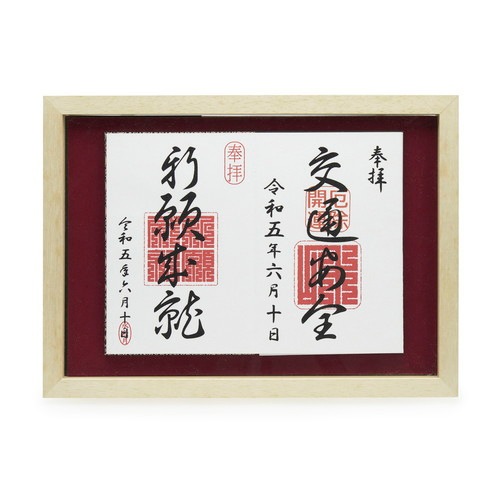 奉拝
交通安全
令和五年六月十日
奉拝
祈願成就
令和五年六月十日